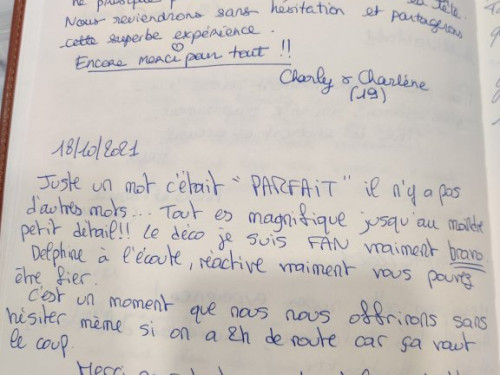 Nous reviendrons sans hésitation et partagerons
cette superbe expérience.
Encore merci pour tout !!
Charly & Charlène
(19)
18/10/2021
Juste un mot c'était "PARFAIT" il n'y a pas
d'autres mots... Tout es magnifique jusqu'au moindre
petit détail!! Le déco je suis FAN vraiment bravo
Delphine à l'écoute, réactive vraiment vous pouvez
être fier.
C'est un moment que nous nous offrirons sans
hésiter même si on a 2h de route car ça vaut
le coup.
Merci